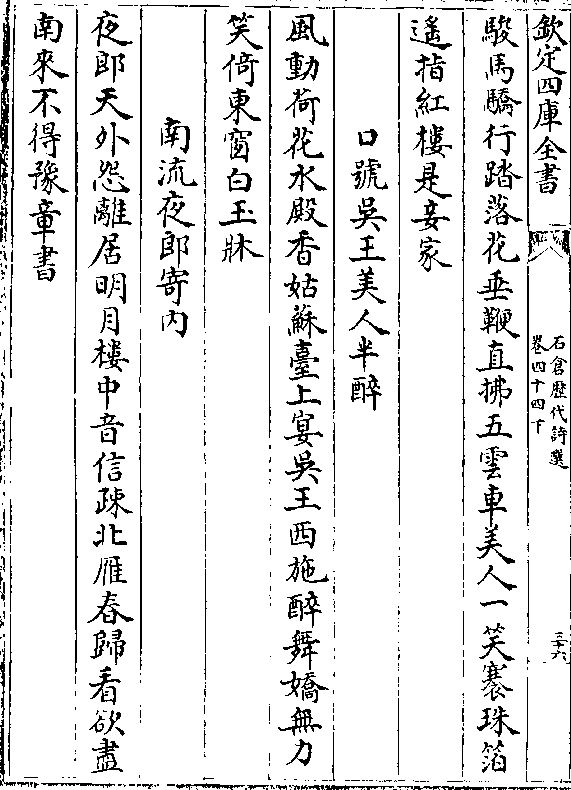 欽定四庫全書
石倉歷代詩選
卷四十四下
三十六
駿馬驕行踏落花垂鞭直拂五雲車美人一笑褰珠箔
遙指紅樓是妾家
口號吳王美人半醉
風動荷花水殿香姑蘇臺上宴吳王西施醉舞嬌無力
笑倚東窗白玉牀
南流夜郎寄內
夜郎天外怨離居明月樓中音信疎北雁春歸看欲盡
南來不得豫章書